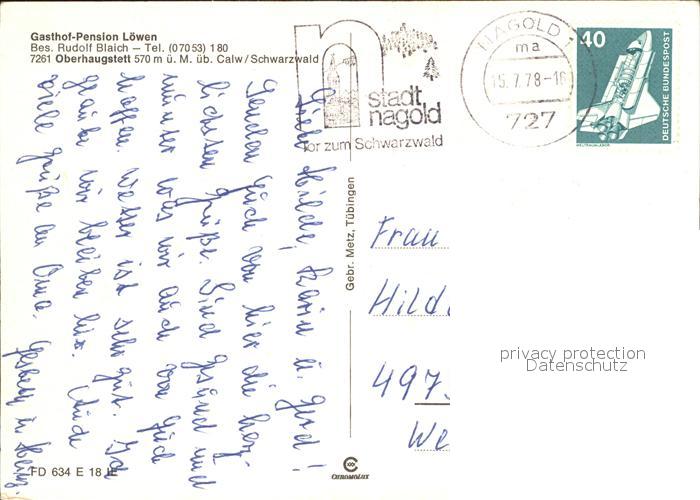 Gasthof-Pension Löwen
Bes. Rudolf Blaich – Tel. (07053) 180
7261 Oberhaugstett 570 m ü. M. üb. Calw/Schwarzwald
n
stadt
nagold
Tor zum Schwarzwald
NAGOLD 1
ma
15.7.78-16
727
40
DEUTSCHE BUNDESPOST
WELTRAUMLABOR
Liebe Hilde, Karin u. Gerd!
Senden Euch von hier die herz-
lichsten Grüße. Sind gesund und
munter was wir auch von Euch
hoffen. Wetter ist sehr gut. Ich
glaube wir bleiben hier. Auch
viele Grüße an Oma.
Gebr. Metz, Tübingen
Frau
Hild
497
We
privacy protection
Datenschutz
FD 634 E 18 IE
CHROMOLUX